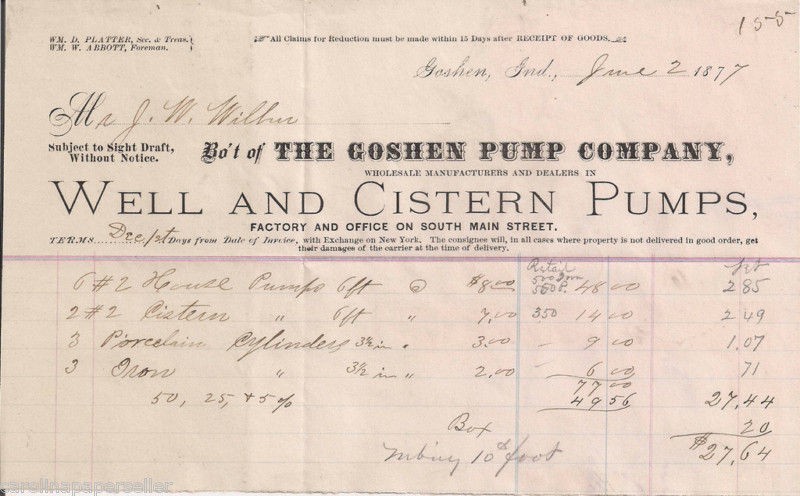 155
WM. D. PLATTER, Sec. & Treas.
WM. W. ABBOTT, Foreman.
All Claims for Reduction must be made within 15 Days after RECEIPT OF GOODS.
Goshen, Ind., June 2 1877
Mr J. W. Wilbur
Subject to Sight Draft,
Without Notice.
Bo't of THE GOSHEN PUMP COMPANY,
WHOLESALE MANUFACTURERS AND DEALERS IN
WELL AND CISTERN PUMPS,
FACTORY AND OFFICE ON SOUTH MAIN STREET.
TERMS Days from Date of Invoice, with Exchange on New York. The consignee will, in all cases where property is not delivered in good order, get
their damages of the carrier at the time of delivery.
Retail
6 #2 House Pumps 6ft @ $8.00 48 00 2 85
2 #2 Cistern " 6ft " 7.00 350 14 00 2 49
3 Porcelain Cylinders 3½ in " 3.00 - 9 00 1.07
3 Iron " 3½ in " 2.00 - 6 00 71
77 00
50, 25, & 5% 49 56 27,44
Box 20
$27,64
Tubing 10 foot
carolinapaperseller